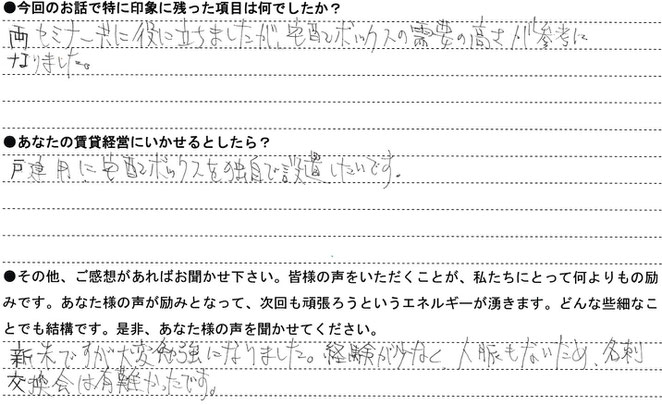 ●今回のお話で特に印象に残った項目は何でしたか？
両セミナー共に役に立ちましたが、宅配ボックスの需要の高さが参考に
なりました。
●あなたの賃貸経営にいかせるとしたら？
戸建用に宅配ボックスを独自で設置したいです。
●その他、ご感想があればお聞かせ下さい。皆様の声をいただくことが、私たちにとって何よりもの励
みです。あなた様の声が励みとなって、次回も頑張ろうというエネルギーが湧きます。どんな些細なこ
とでも結構です。是非、あなた様の声を聞かせてください。
新米ですが大変勉強になりました。経験が少なく人脈もないため、名刺
交換会は有難かったです。